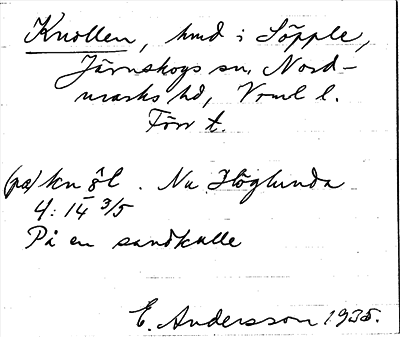 Knollen, hmd i Söpple,
Järnskogs sn, Nord-
marks hd, Vrml l.
Förr t.
(på) . Nu Höglunda
4:14 3/5
På en sandkulle
E. Andersson 1935.